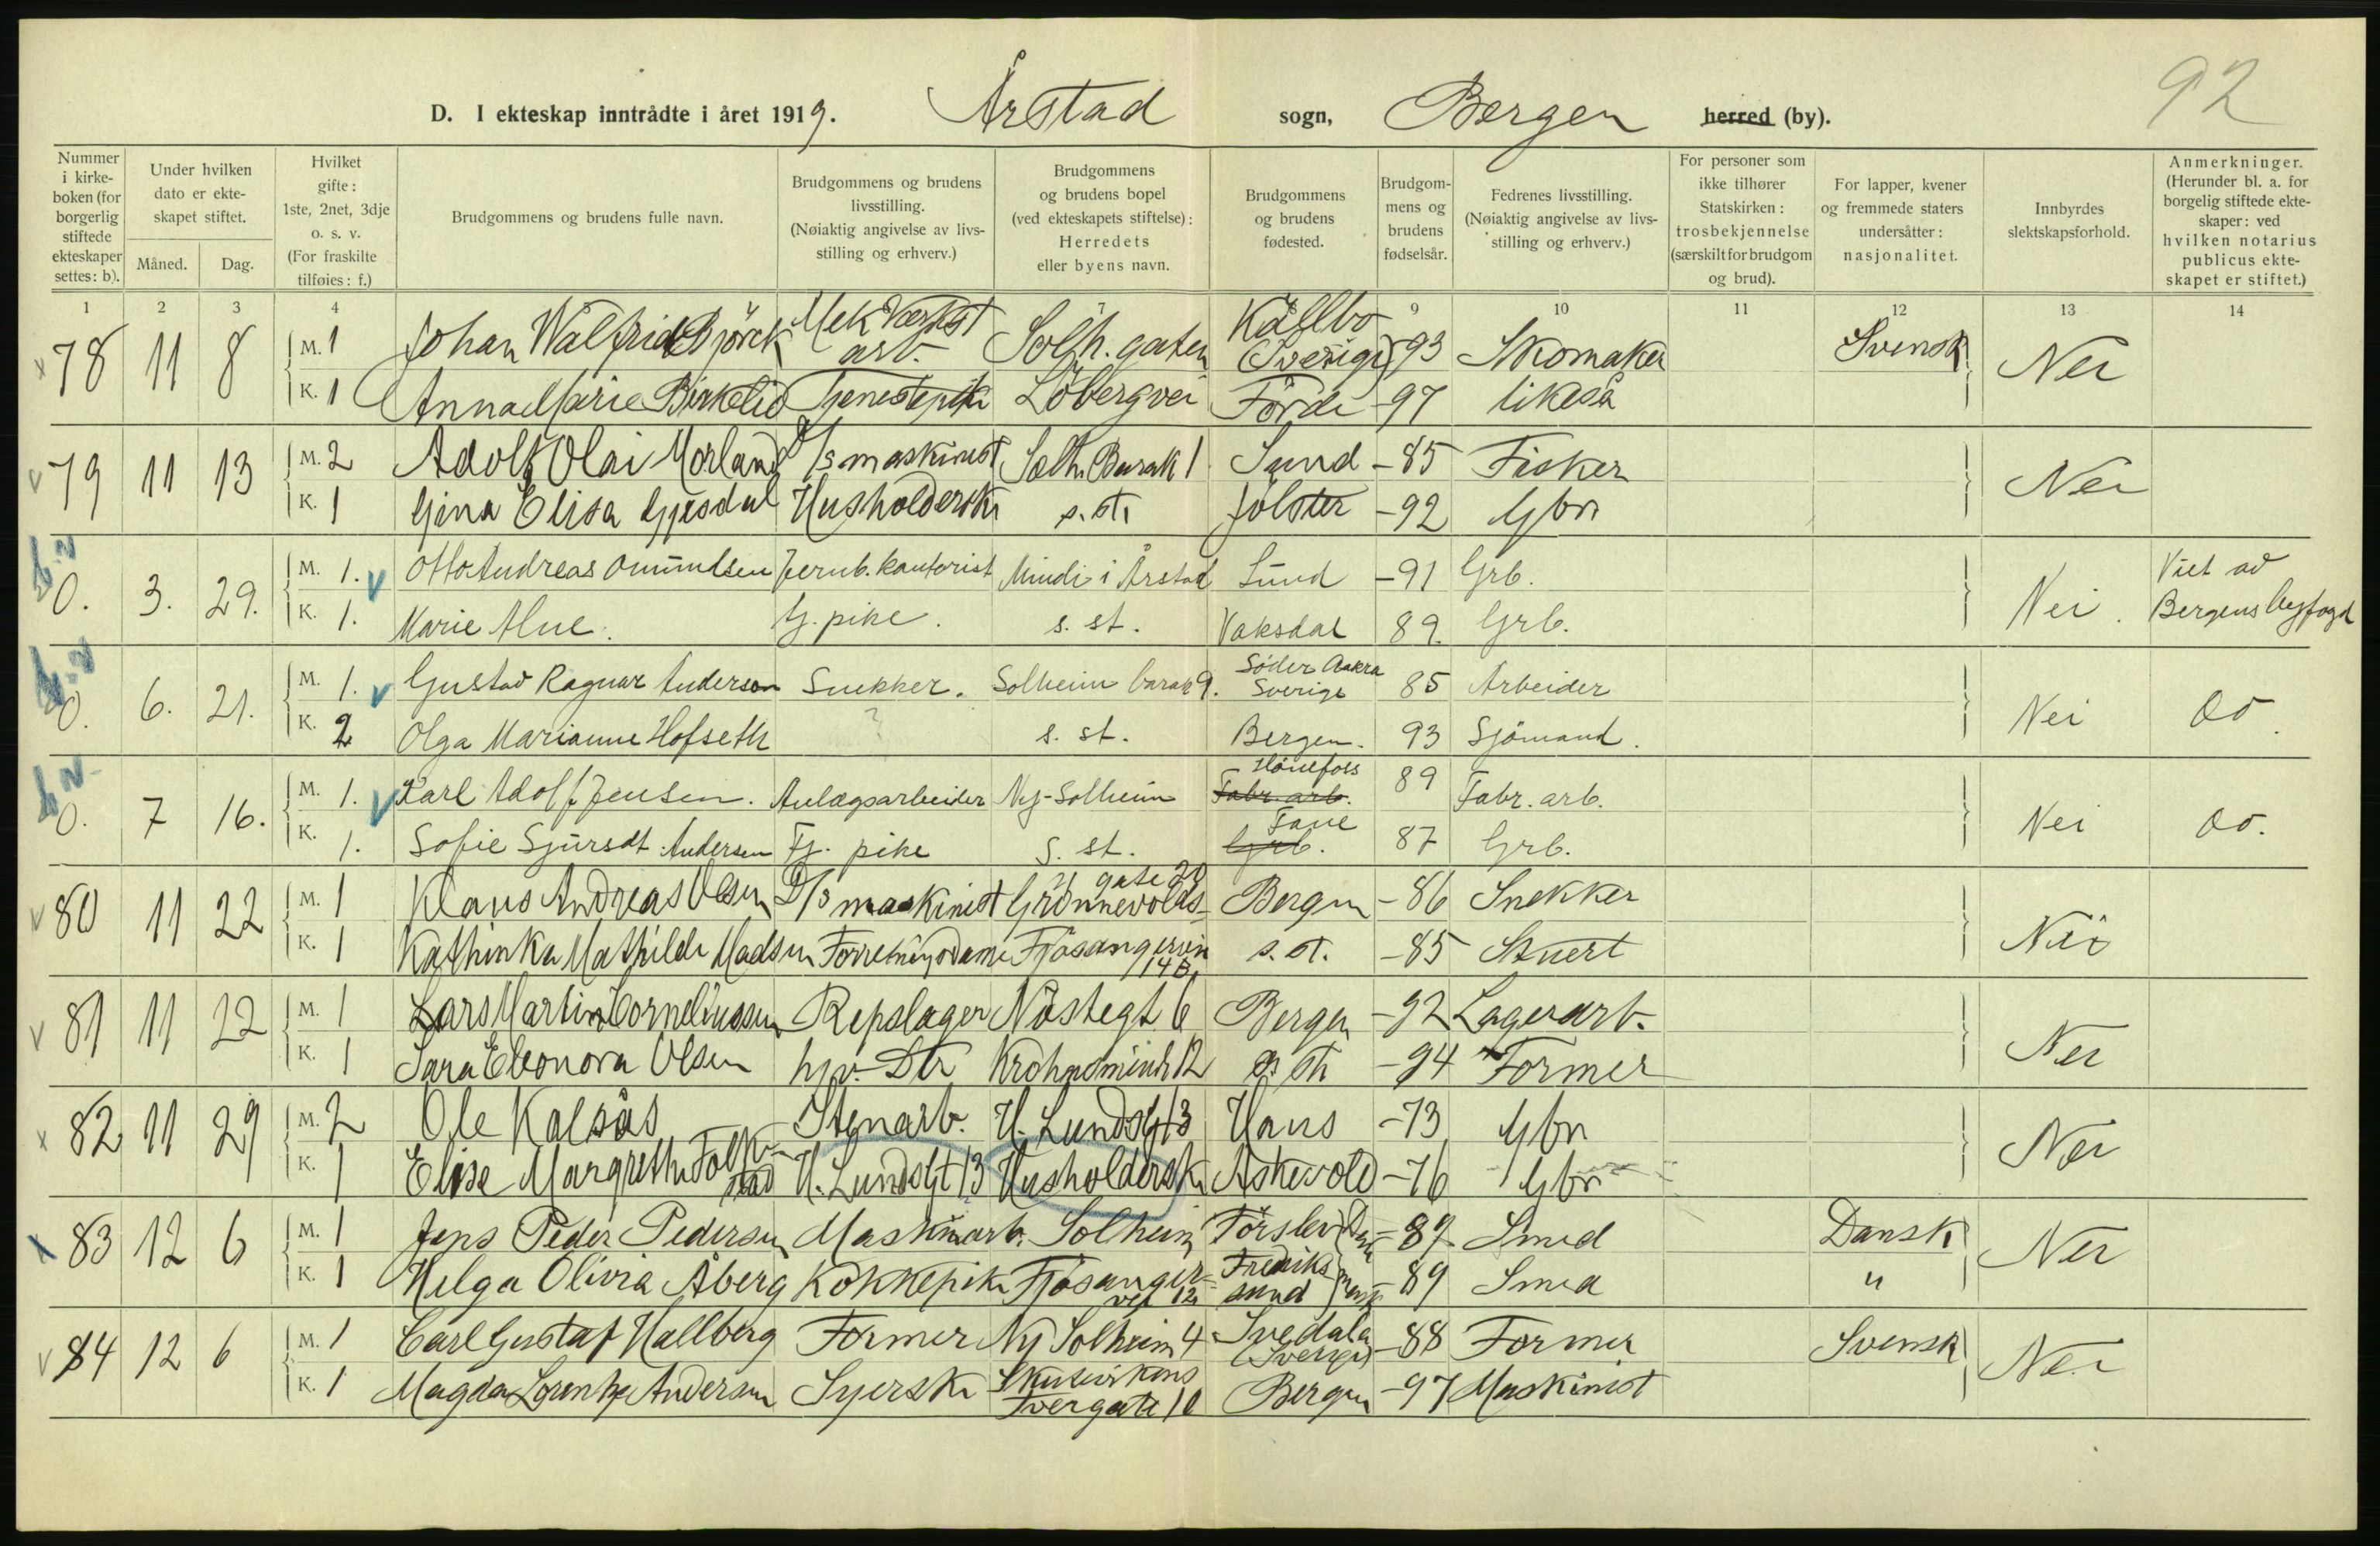 92
D. I ekteskap inntrådte i året 1919. Årstad sogn, Bergen herred (by).
Nummer i kirkeboken (for borgerlig stiftede ekteskaper settes: b).
Under hvilken dato er ekteskapet stiftet.
Måned. Dag.
Hvilket gifte: 1ste, 2net, 3dje o. s. v. (For fraskilte tilføies: f.)
Brudgommens og brudens fulle navn.
Brudgommens og brudens livsstilling. (Nøiaktig angivelse av livsstilling og erhverv.)
Brudgommens og brudens bopel (ved ekteskapets stiftelse): Herredets eller byens navn.
Brudgommens og brudens fødested.
Brudgommens og brudens fødselsår.
Fedrenes livsstilling. (Nøiaktig angivelse av livsstilling og erhverv.)
For personer som ikke tilhører Statskirken: trosbekjennelse (særskilt for brudgom og brud).
For lapper, kvener og fremmede staters undersåtter: nasjonalitet.
Innbyrdes slektskapsforhold.
Anmerkninger. (Herunder bl. a. for borgelig stiftede ekteskaper: ved hvilken notarius publicus ekteskapet er stiftet.)
1 2 3 4 7 9 10 11 12 13 14
78 11 8 M. 1 Johan Walfrid Björck Mek Værkst arb. Solh. gaten Källbo (Sverige) 93 Skomaker Svensk Nei
K. 1 Anna Marie Birkelid Tjenestepike Löbergvei Förde -97 likeså
79 11 13 M. 2 Adolf Olai Morland D/s maskinist Solh. Barak 1 Sund -85 Fisker Nei
K. 1 Gina Elisa Gjesdal Husholderske s. st. Jölster -92 Gbr
0. 3. 29. M. 1. Otto Andreas Omundsen Jernb. kontorist Minde i Årstad Sund -91 Grb. Nei. Viet av Bergens Byfogd
K. 1. Marie Alne. Tj. pike. s. st. Vaksdal 89. Grb.
0. 6. 21. M. 1. Gustav Ragnar Anderson Snekker. Solheim barak 9. Söder Aakra Sverige 85 Arbeider Nei Do.
K. 2 Olga Marianne Hofseth ? s. st. Bergen. 93 Sjömand.
0. 7 16. M. 1. Karl Adolf Jensen. Anlægsarbeider Ny-Solheim Fabr. arb. Hönefoss 89 Fabr. arb. Nei Do.
K. 1. Sofie Sjursdt. Andersen Tj. pike s. st. Grb. Fane 87 Grb.
80 11 22 M. 1 Klaus Andreas Olsen D/s maskinist Grönnevolds gate 20 Bergen -86 Snekker Nei
K. 1 Kathinka Mathilde Madsen Forretningsdame Fjösangerveien 14B. s. st. -85 Stuert
81 11 22 M. 1 Lars Martin Corneliussen Repslager Nöstegt 6 Bergen -92 Lagerarb. Nei
K. 1 Sara Eleonora Olsen hjv. Dtr 12 s. st. -94 Former
82 11 29 M. 2 Ole Kalsås Stenarb. H. Lundsgt 13 Haus -73 Gbr Nei
K. 1 Elise Margrethe Folkestad H. Lundsgt 13 Husholderske Askevold -76 Gbr
83 12 6 M. 1 Jens Peder Pedersen Maskinarb. Solheim Förslev Dansk -89 Smed Dansk Nei
K. 1 Helga Olivia Åberg Kokkepike Fjösangervei 12 Frederikssund -89 Smed "
84 12 6 M. 1 Carl Gustaf Hallberg Former Ny Solheim 4 Svedala (Sverige) -88 Former Svensk Nei
K. 1 Magda Lorentze Andersen Syerske Skutevikens Tvergate 10 Bergen -97 Maskinist